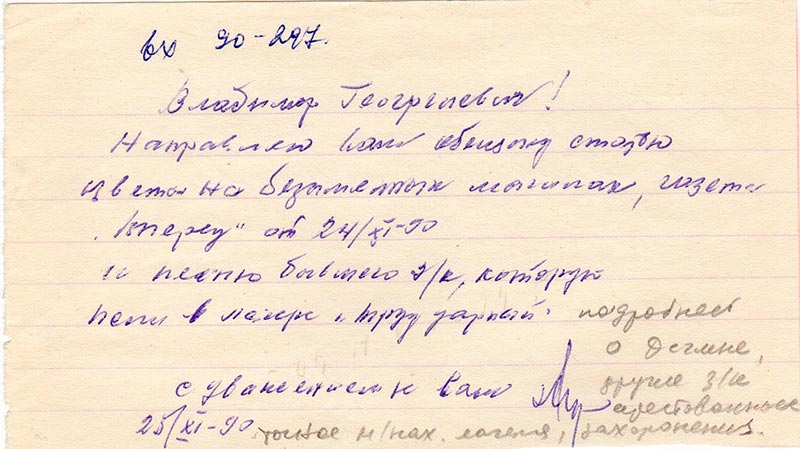 вх 90-297.
Владимир Георгиевич!
Направляю Вам обещану статью
Цветы на безыменных могилах, газета
„Вперед“ от 24/XI-90
и песню бывшего з/к, которую
пели в лагере „Труд
подробней
о
другие з/к
арестованные
С уважением к Вам
25/XI-90
точное м/нах. лагеря, захоронения.